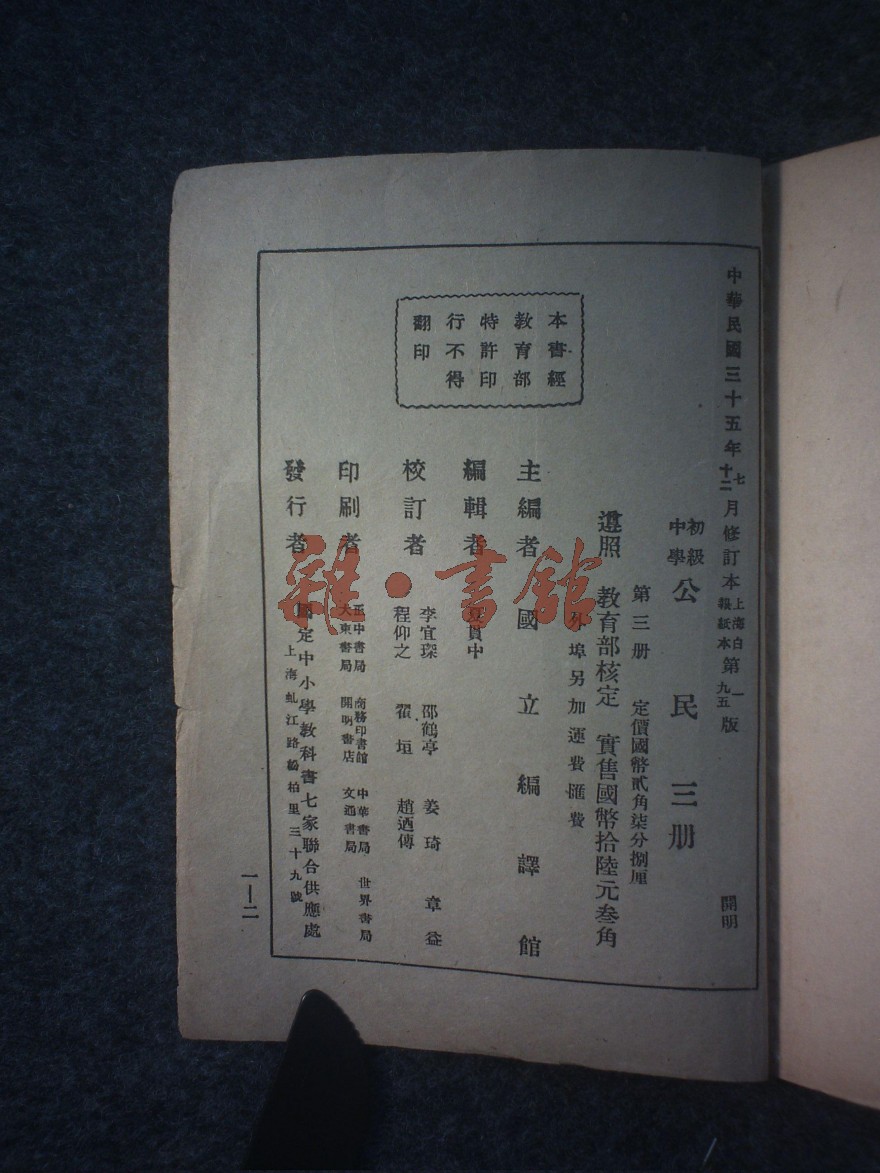 中華民國三十五年 七 十二 月修訂本 上海白報紙本 第 一 九五 版
開明
初級中學 公民 三册
第三册 定價國幣貳角柒分捌厘
遵照 教育部核定 實售國幣拾陸元叁角
外埠另加運費匯費
本書經
教育部
特許印
行不得
翻印
主編者 國立編譯館
編輯者 夏貫中
校訂者 李宜琛 邵鶴亭 姜琦 章益
程仰之 翟垣 趙迺傳
印刷者 正中書局 商務印書館 中華書局 世界書局
大東書局 開明書店 文通書局
發行者 國定中小學教科書七家聯合供應處
上海虬江路 柏里三十九號
一—二
雜·書館